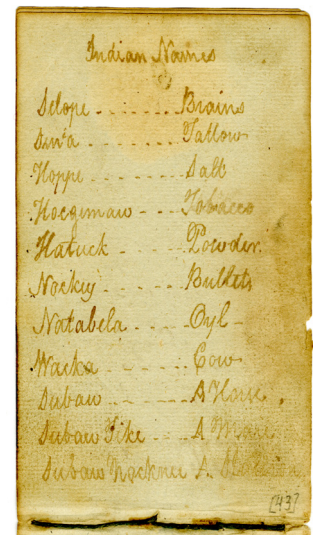 Indian Names
Selope - - - - - Brains
Tallow
Hoppe - - - - - Salt
Hocgimaw - - - Tobacco
Hatuck - - - - Powder.
Nockey - - - - Bullets
Natabela - - - - Oyl
Wacka - - - - - Cow
Subaw - - - - - A Horse.
Subaw Tike - - - A Mare
Subaw Nacknee A Stallion
[43]